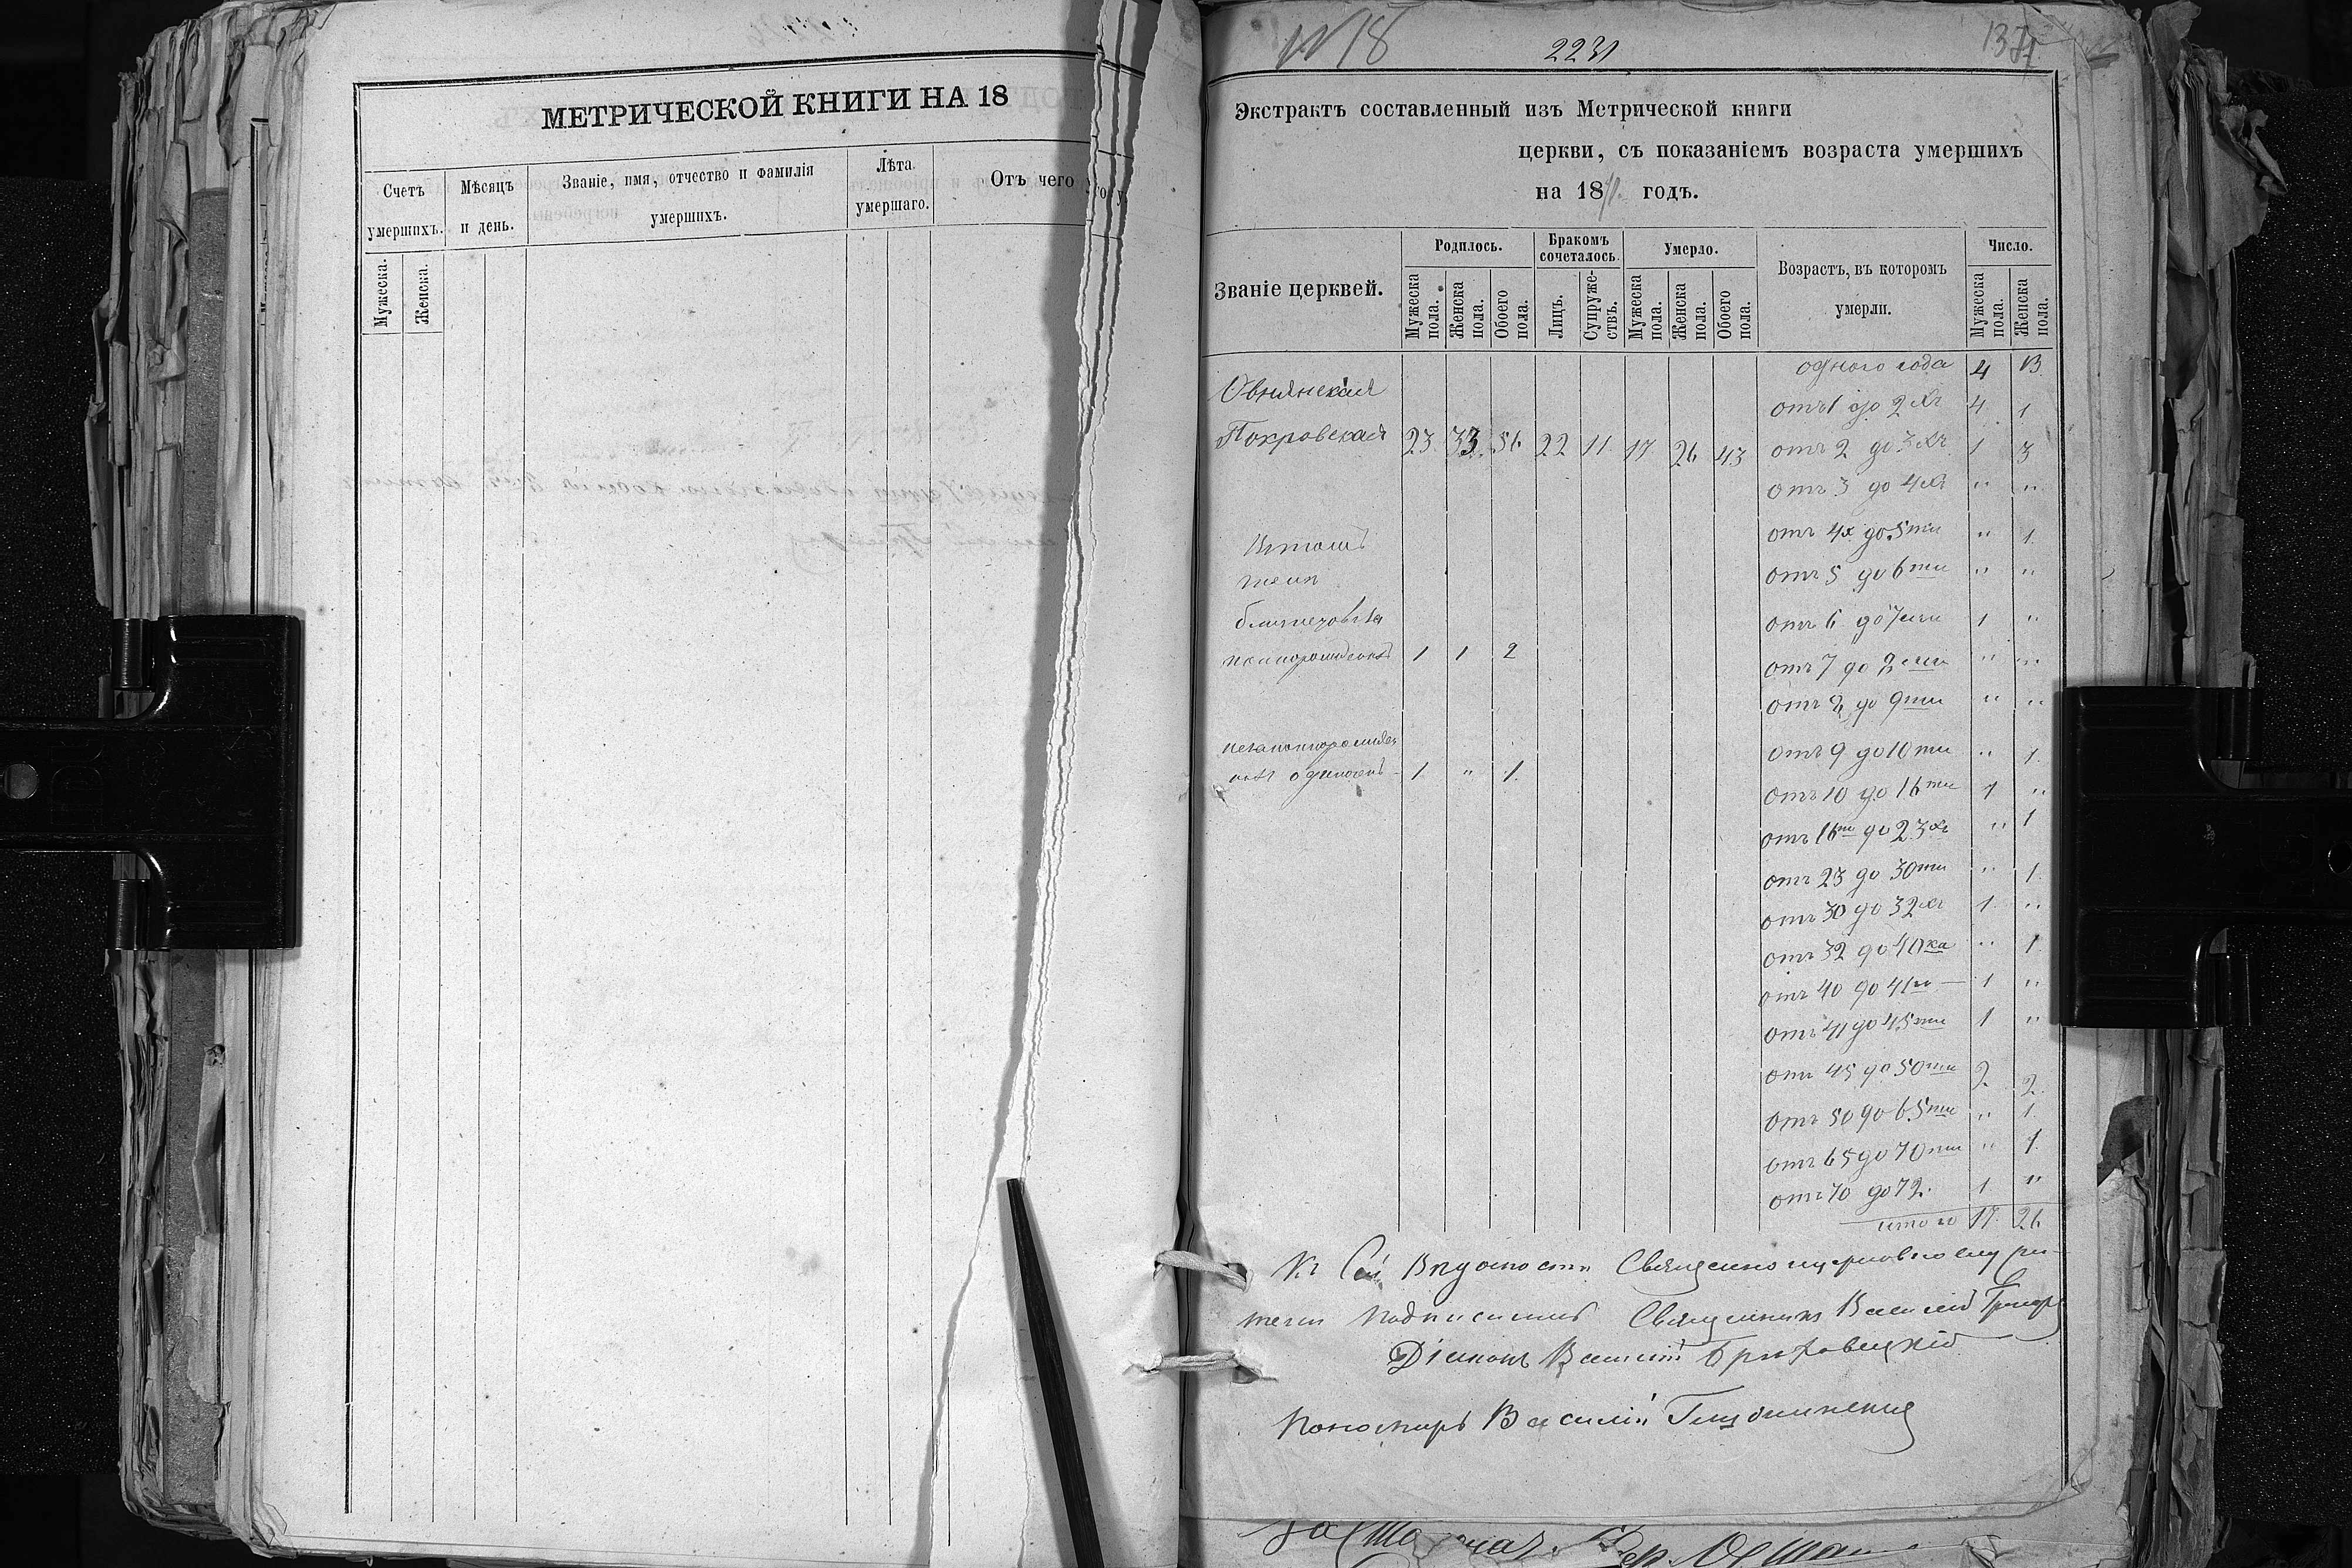 МЕТРИЧЕСКОЙ КНИГИ НА 18
Счетъ умершихъ.
Мѣсяцъ и день.
Званіе, имя, отчество и фамилія умершихъ.
Лѣта умершаго.
Отъ чего
Мужеска.
Женска.
№ 18
2231
Экстрактъ составленный изъ Метрической книги
церкви, съ показаніемъ возраста умершихъ
на 1871 годъ.
Званіе церквей.
Родилось.
Бракомъ сочеталось.
Умерло.
Возрастъ, въ которомъ умерли.
Число.
Мужеска пола.
Женска пола.
Обоего пола.
Лицъ.
Супружествъ.
Мужеска пола.
Женска пола.
Обоего пола.
Мужеска пола.
Женска пола.
одного года 4 13.
Овнянская
отъ 1 до 2хъ 4 1
Покровская 23. 33. 56 22 11. 17 26 43 отъ 2 до 3хъ 1 3
отъ 3 до 4хъ " "
Втомъ отъ 4х до 5ти " 1.
числѣ отъ 5 до 6ти " "
близнецовъ за отъ 6 до 7ми 1 "
1 1 2 отъ 7 до 8ми " "
отъ 8 до 9ти " "
отъ 9 до 10ти " 1.
1. " 1.
отъ 10 до 16ти 1 "
отъ 16ти до 23хъ " 1
отъ 23 до 30ти " 1.
отъ 30 до 32хъ 1. "
отъ 32 до 40ка " 1.
отъ 40 до 41го — 1 "
отъ 41 до 45ти 1 "
отъ 45 до 50ти 2 2.
отъ 50 до 65ти " 1.
отъ 65 до 70ти " 1.
отъ 70 до 72. 1 "
итого 17. 26
Къ Сей Священно
Священникъ Василій
Діаконъ Василій
Пономарь Василій